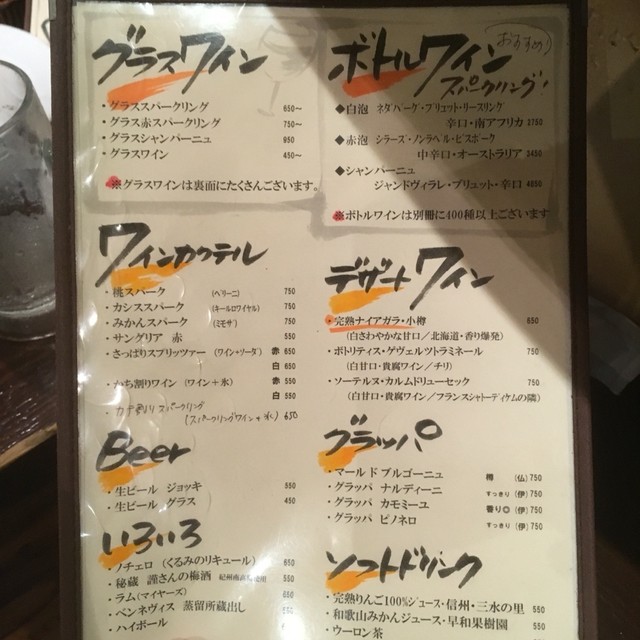 グラスワイン
・グラススパークリング 650〜
・グラス赤スパークリング 750〜
・グラスシャンパーニュ 950
・グラスワイン 450〜
※グラスワインは裏面にたくさんございます。
ボトルワイン
おすすめ
スパークリング!
◆白泡 ネダバーグ・ブリュット・リースリング
辛口・南アフリカ 3750
◆赤泡 シラーズ・ノンラベル・ビスポーク
中辛口・オーストラリア 3450
◆シャンパーニュ
ジャンドヴィラレ・ブリュット・辛口 4850
※ボトルワインは別冊に400種以上ございます
ワインカクテル
・桃スパーク (ベリーニ) 750
・カシススパーク (キールロワイヤル) 750
・みかんスパーク (ミモザ) 750
・サングリア 赤 550
・さっぱりスプリッツァー (ワイン・ソーダ) 赤 650
白 650
・かち割りワイン (ワイン+氷) 赤 550
白 550
・カチ割りスパークリング
(スパークリングワイン+氷) 650
デザートワイン
・完熟ナイアガラ・小樽 650
(白さわやかな甘口/北海道・香り爆発)
・ボトリティス・ゲヴェルツトラミネール 750
(白甘口・貴腐ワイン/チリ)
・ソーテルヌ・カルムドリューセック 750
(白甘口・貴腐ワイン/フランスシャトーディケムの隣)
Beer
・生ビール ジョッキ 550
・生ビール グラス 450
グラッパ
・マール ド ブルゴーニュ 樽 (仏) 750
・グラッパ ナルディーニ すっきり (伊) 750
・グラッパ カモミーユ 香り◎ (伊) 750
・グラッパ ピノネロ すっきり (伊) 750
いろいろ
・ノチェロ (くるみのリキュール) 650
・秘蔵 謹さんの梅酒 紀州南高梅使用 550
・ラム(マイヤーズ) 650
・ベンネヴィス 蒸留所蔵出し 550
・ハイボール
ソフトドリンク
・完熟りんご100%ジュース・信州・三水の里 550
・和歌山みかんジュース・早和果樹園 550
・ウーロン茶